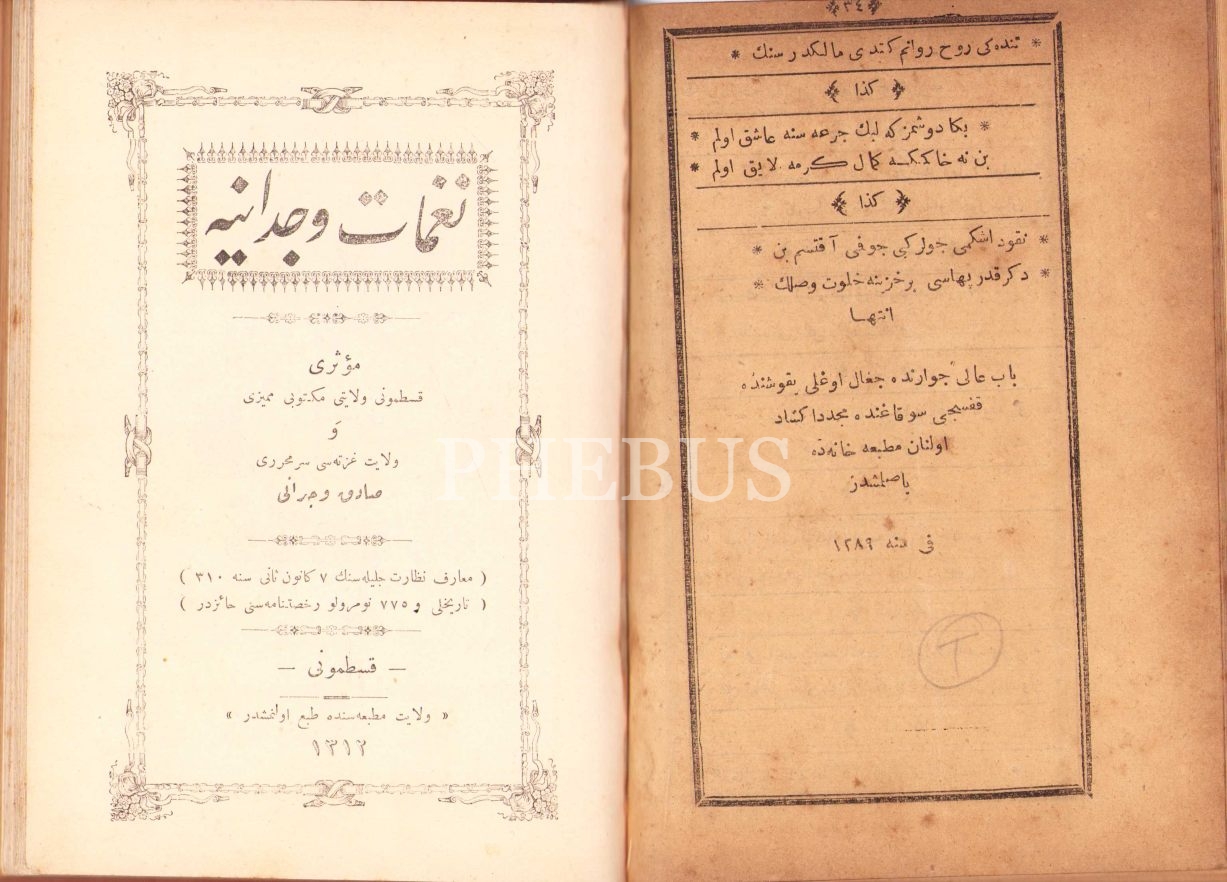 ﴿٣٤﴾
* تنده كی روح روانم كندی مالكدر سنك *
﴿ كذا ﴾
* بكا دوشمز كه لبك جرعه سنه عاشق اولم *
بن نه خاكم كه كمال كرمه لایق اولم *
﴿ كذا ﴾
* نقود اشكمی جولر كبی جوفی آقتسم بن *
* دكر قدر بهاسی بر خزینه خلوت وصلك *
انتها
باب عالی جوارنده جغال اوغلی یقوشنده
قفسجی سوقاغنده مجددا كشاد
اولنان مطبعه خانه ده
باصلمشدر
فی سنه ١٢٨٩
نغمات وجدانیه
مؤثری
قسطمونی ولایتی مكتوبی ممیزی
و
ولایت غزته سی سر محرری
صادق وجدانی
( معارف نظارت جلیله سنك ٧ كانون ثانی سنه ٣١٠ )
( تاریخلی و ٧٧٥ نومرولو رخصتنامه سنی حائزدر )
— قسطمونی —
« ولایت مطبعه سنده طبع اولنمشدر »
١٣١٢
PHEBUS